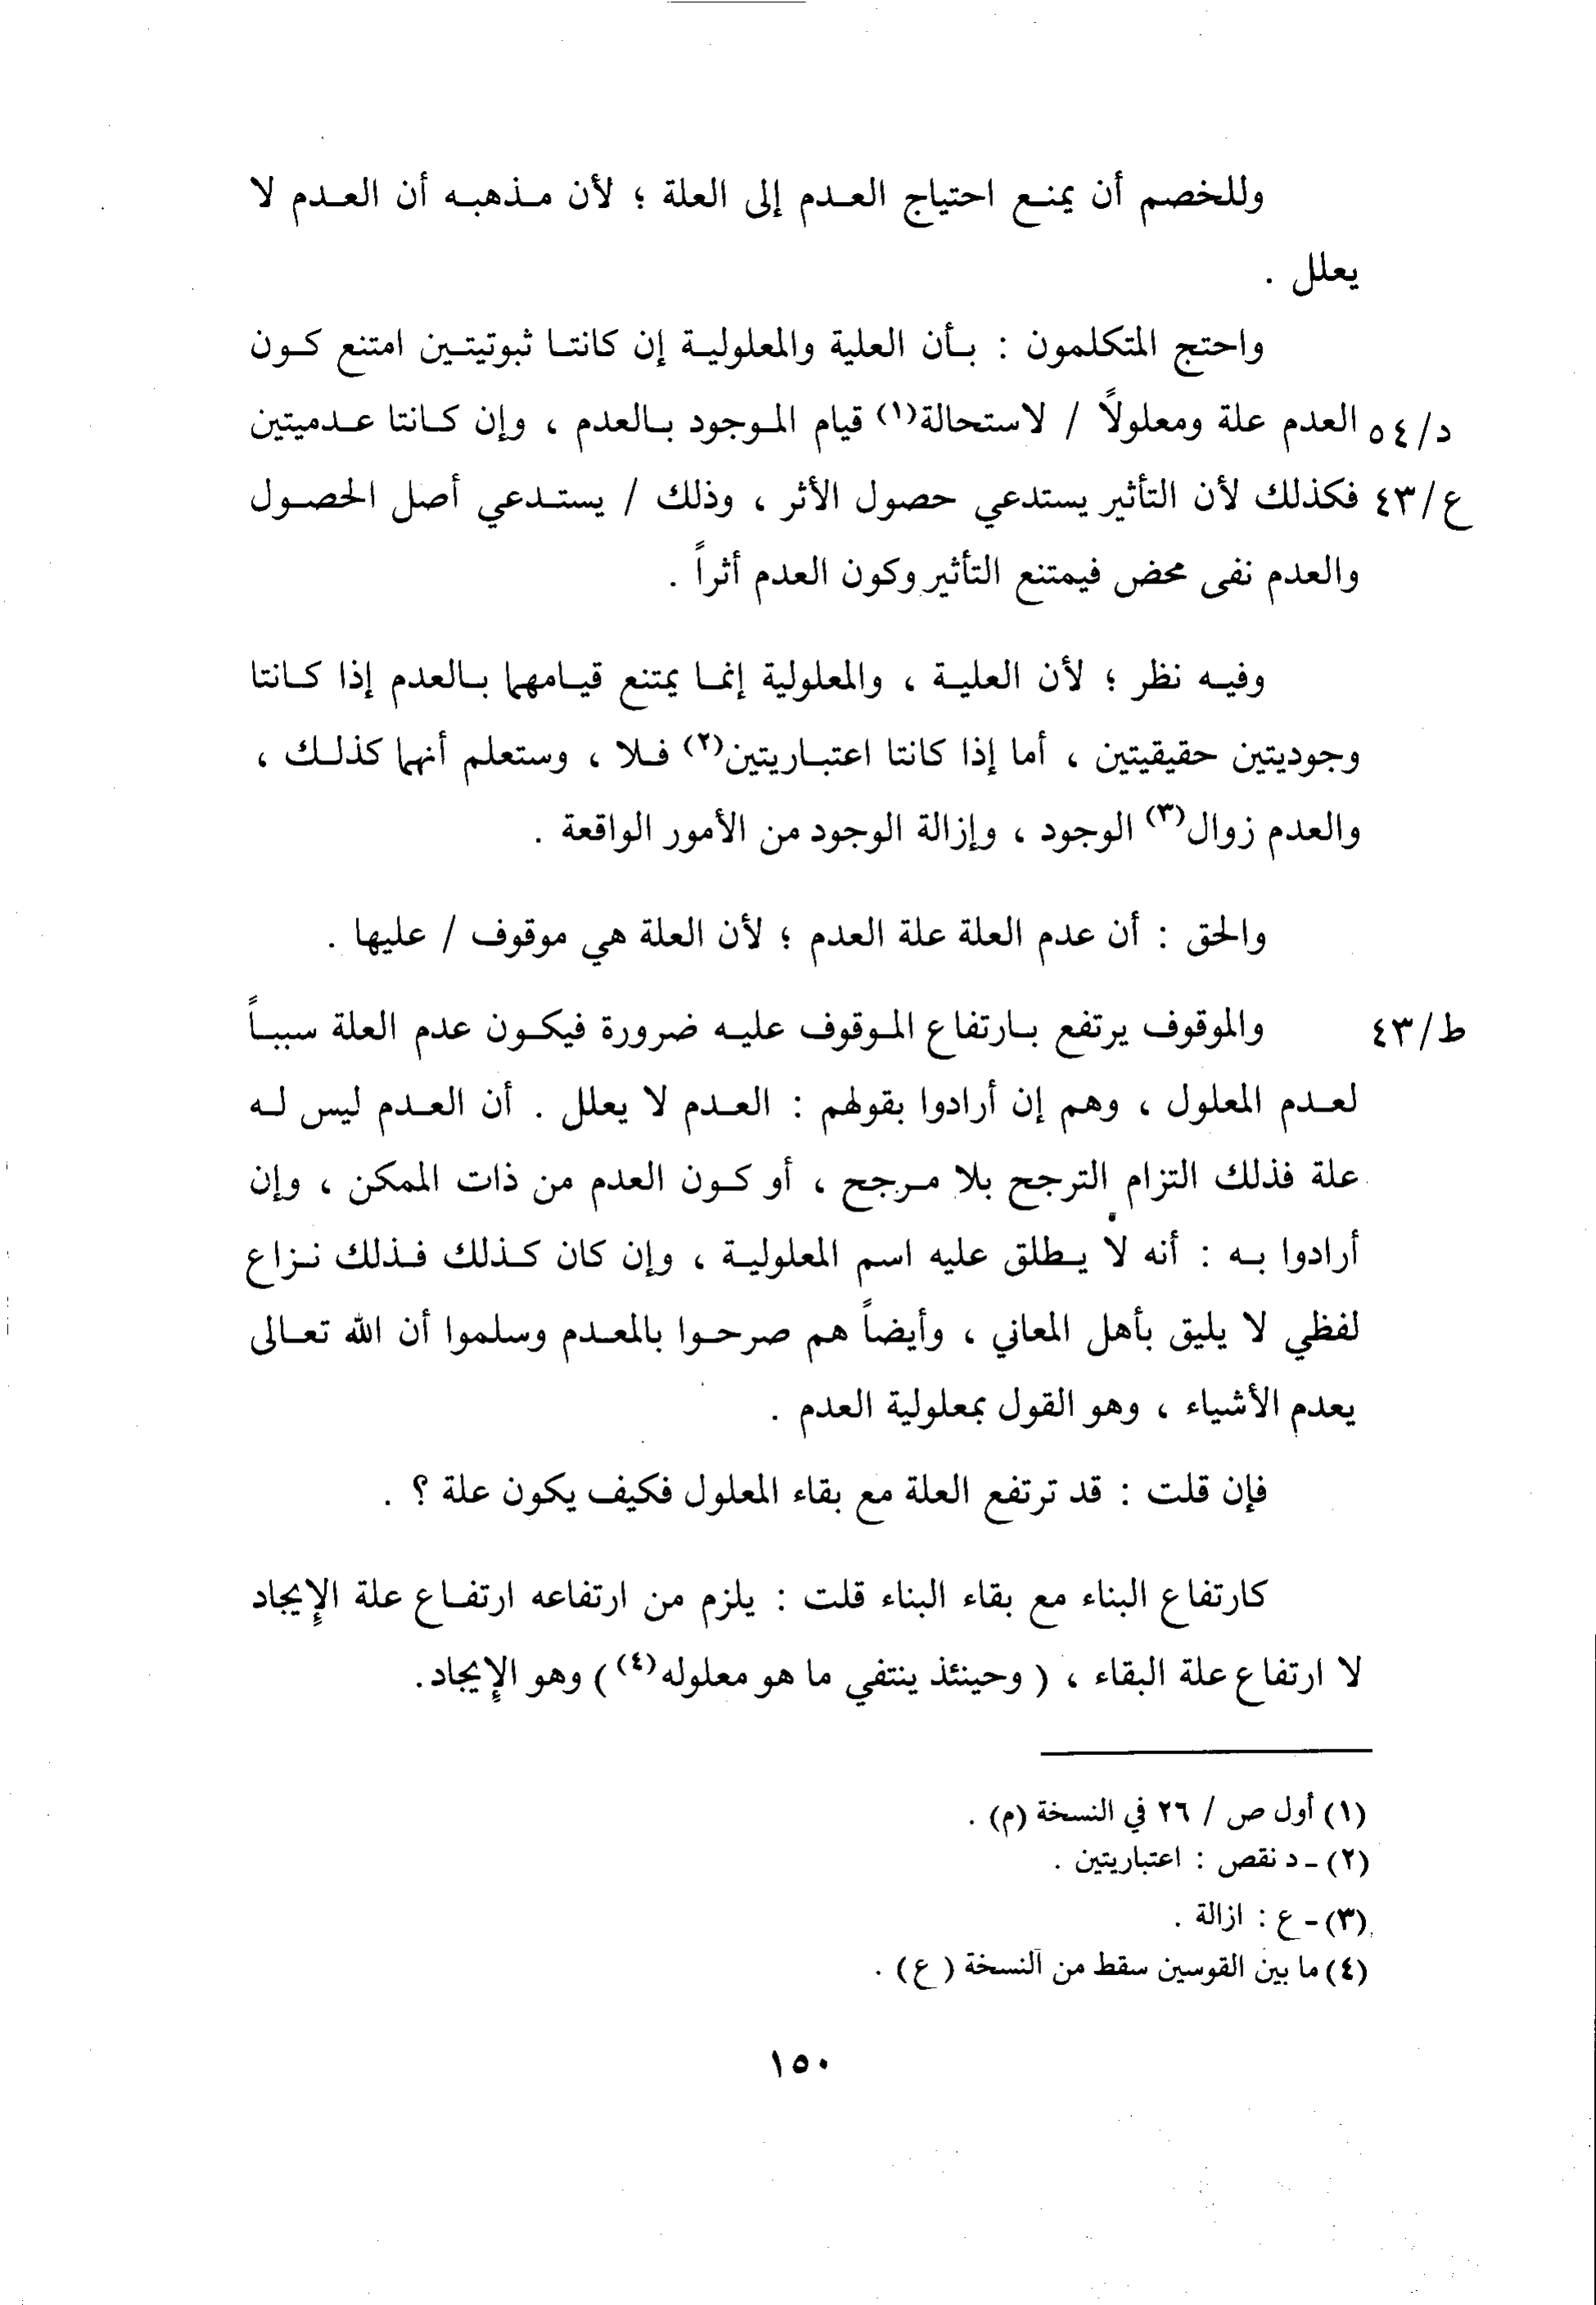 وللخصم أن يمنع احتياج العدم إلى العلة ؛ لأن مذهبه أن العدم لا
يعلل .
واحتج المتكلمون : بأن العلية والمعلولية إن كانتا ثبوتيتين امتنع كون
د/٥٤ العدم علة ومعلولاً / لاستحالة(١) قيام الموجود بالعدم ، وإن كانتا عدميتين
ع/٤٣ فكذلك لأن التأثير يستدعي حصول الأثر ، وذلك / يستدعي أصل الحصول
والعدم نفى محض فيمتنع التأثير وكون العدم أثراً .
وفيه نظر ؛ لأن العلية ، والمعلولية إنما يمتنع قيامهما بالعدم إذا كانتا
وجوديتين حقيقيتين ، أما إذا كانتا اعتباريتين(٢) فلا ، وستعلم أنهما كذلك ،
والعدم زوال(٣) الوجود ، وإزالة الوجود من الأمور الواقعة .
والحق : أن عدم العلة علة العدم ؛ لأن العلة هي موقوف / عليها .
ط/٤٣ والموقوف يرتفع بارتفاع الموقوف عليه ضرورة فيكون عدم العلة سبباً
لعدم المعلول ، وهم إن أرادوا بقولهم : العدم لا يعلل . أن العدم ليس له
علة فذلك التزام الترجح بلا مرجح ، أو كون العدم من ذات الممكن ، وإن
أرادوا به : أنه لا يطلق عليه اسم المعلولية ، وإن كان كذلك فذلك نزاع
لفظي لا يليق بأهل المعاني ، وأيضاً هم صرحوا بالمعدم وسلموا أن الله تعالى
يعدم الأشياء ، وهو القول بمعلولية العدم .
فإن قلت : قد ترتفع العلة مع بقاء المعلول فكيف يكون علة ؟ .
كارتفاع البناء مع بقاء البناء قلت : يلزم من ارتفاعه ارتفاع علة الإيجاد
لا ارتفاع علة البقاء ، ( وحينئذ ينتفي ما هو معلوله(٤) ) وهو الإيجاد.
(١) أول ص / ٢٦ في النسخة (م) .
(٢) - د نقص : اعتباريتين .
(٣) - ع : ازالة .
(٤) ما بين القوسين سقط من النسخة ( ع ) .
١٥٠